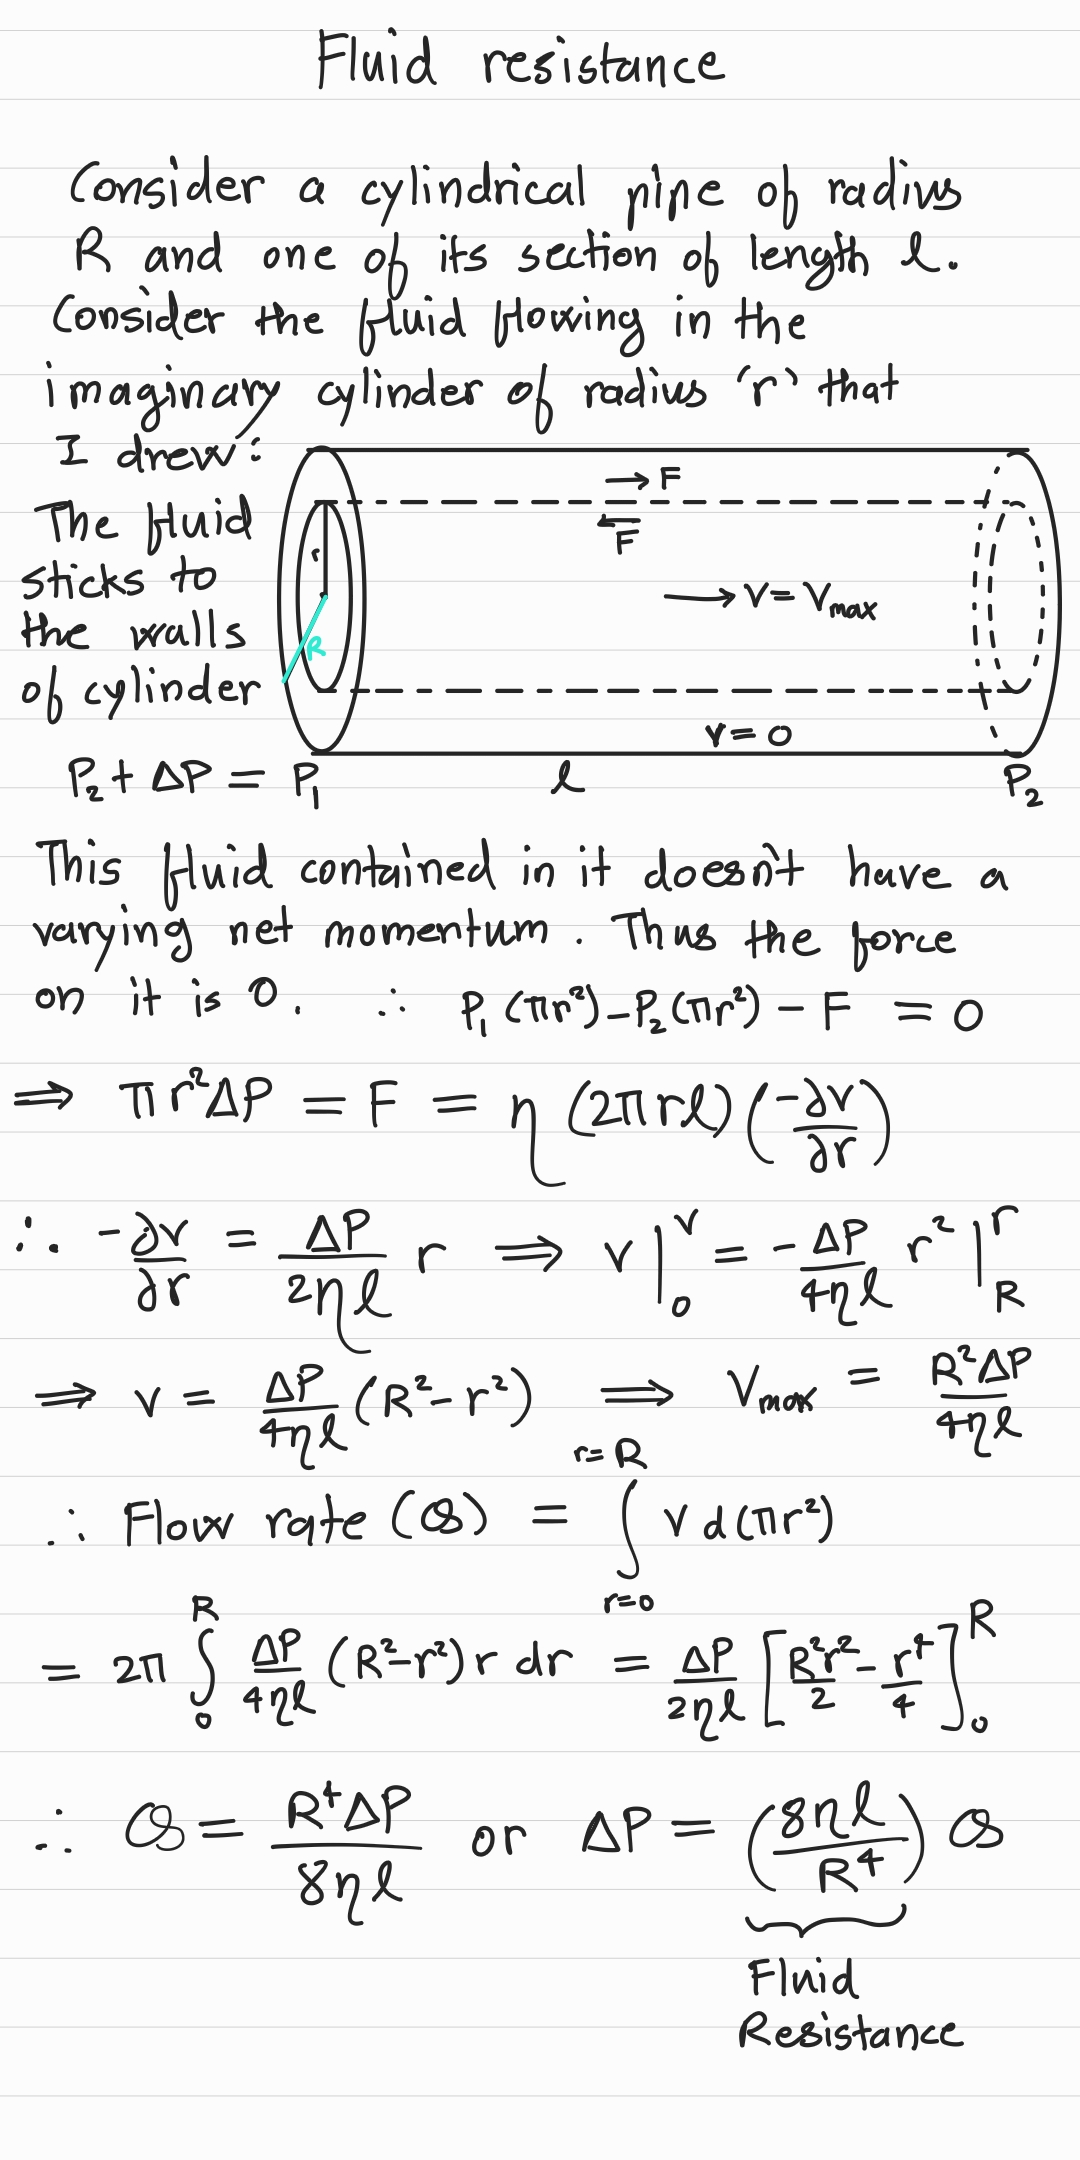 Fluid resistance
Consider a cylindrical pipe of radius
R and one of its section of length l.
Consider the fluid flowing in the
imaginary cylinder of radius 'r' that
I drew:
The fluid
sticks to
the walls
of cylinder
→ F
← F
r
R
→ v = v_max
v = 0
P₂ + ΔP = P₁
l
P₂
This fluid contained in it doesn't have a
varying net momentum. Thus the force
on it is 0. ∴ P₁(πr²) – P₂(πr²) – F = 0
⇒ πr²ΔP = F = η(2πrl)(-∂v/∂r)
∴ -∂v/∂r = ΔP/2ηl r ⇒ v|₀^v = - ΔP/4ηl r²|_R^r
⇒ v = ΔP/4ηl (R² – r²) ⇒ V_max = R²ΔP/4ηl
∴ Flow rate (Q) = ∫_{r=0}^{r=R} v d(πr²)
= 2π ∫₀^R ΔP/4ηl (R² – r²) r dr = ΔP/2ηl [R²r²/2 – r⁴/4]₀^R
∴ Q = R⁴ΔP/8ηl or ΔP = (8ηl/R⁴) Q
Fluid
Resistance